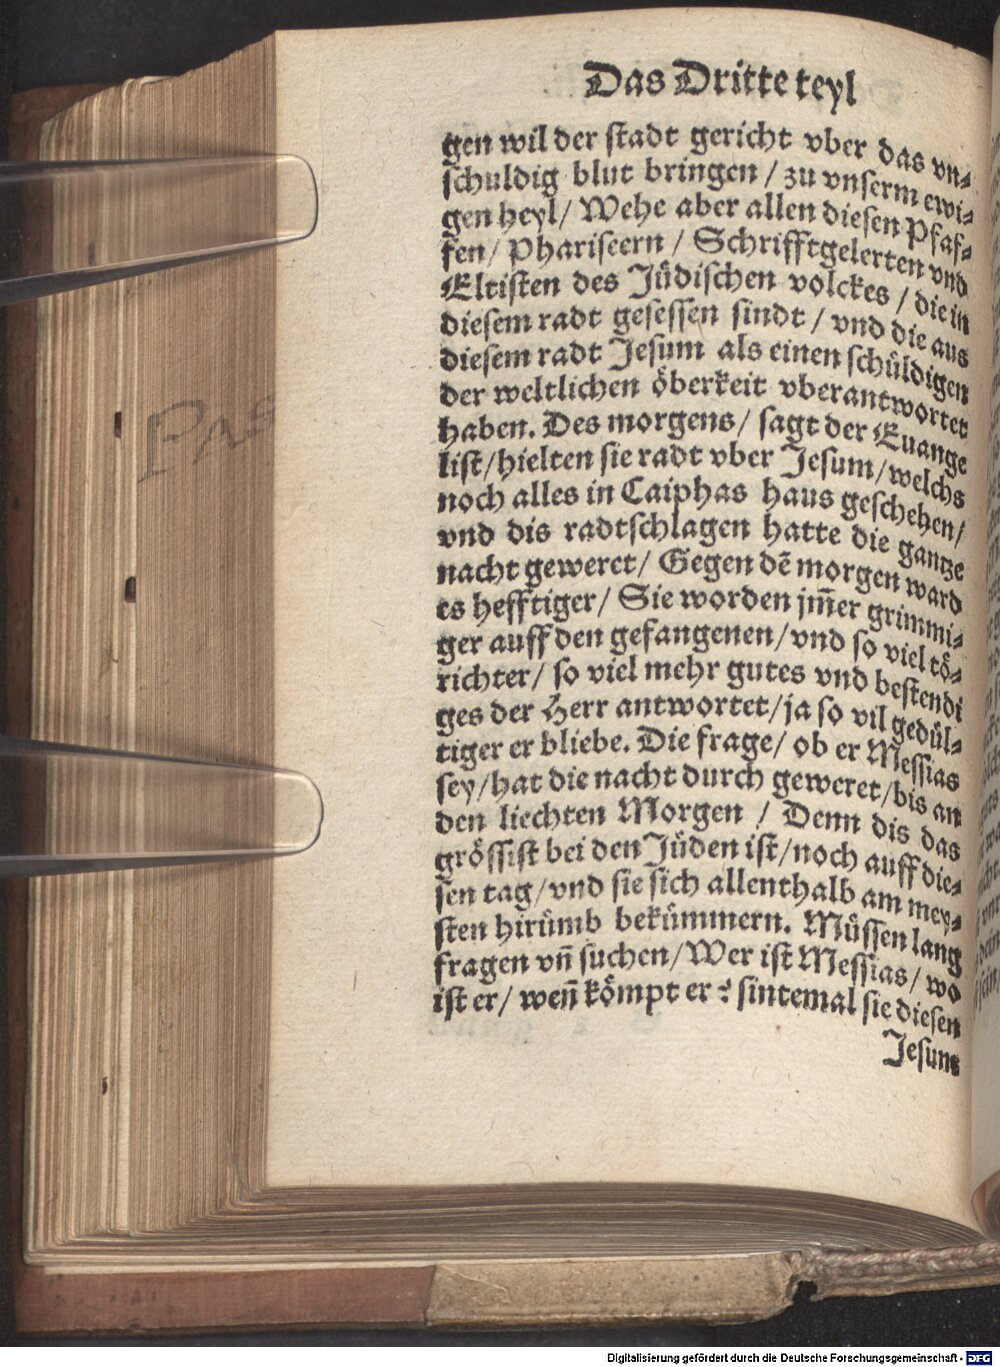 Das Dritte teyl
gen wil der stadt gericht vber das vn⸗
schuldig blut bringen / zu vnserm ewi⸗
gen heyl / Wehe aber allen diesen Pfaf⸗
fen / Phariseern / Schrifftgelerten vnd
Eltisten des Jüdischen volckes / die in
diesem radt gesessen sindt / vnd die aus
diesem radt Jesum als einen schüldigen
der weltlichen öberkeit vberantwortet
haben. Des morgens / sagt der Euange
list / hielten sie radt vber Jesum / welchs
noch alles in Caiphas haus geschehen /
vnd dis radtschlagen hatte die gantze
nacht geweret / Gegen dē morgen ward
es hefftiger / Sie worden jm̄er grimmi⸗
ger auff den gefangenen / vnd so viel tö⸗
richter / so viel mehr gutes vnd bestendi
ges der Herr antwortet / ja so vil gedül⸗
tiger er bliebe. Die frage / ob er Messias
sey / hat die nacht durch geweret / bis an
den liechten Morgen / Denn dis das
grössist bei den Jüden ist / noch auff die⸗
sen tag / vnd sie sich allenthalb am mey⸗
sten hirümb bekümmern. Müssen lang
fragen vn̄ suchen / Wer ist Messias / wo
ist er / wen̄ kömpt er? sintemal sie diesen
Jesum
PAS
Digitalisierung gefördert durch die Deutsche Forschungsgemeinschaft - DFG